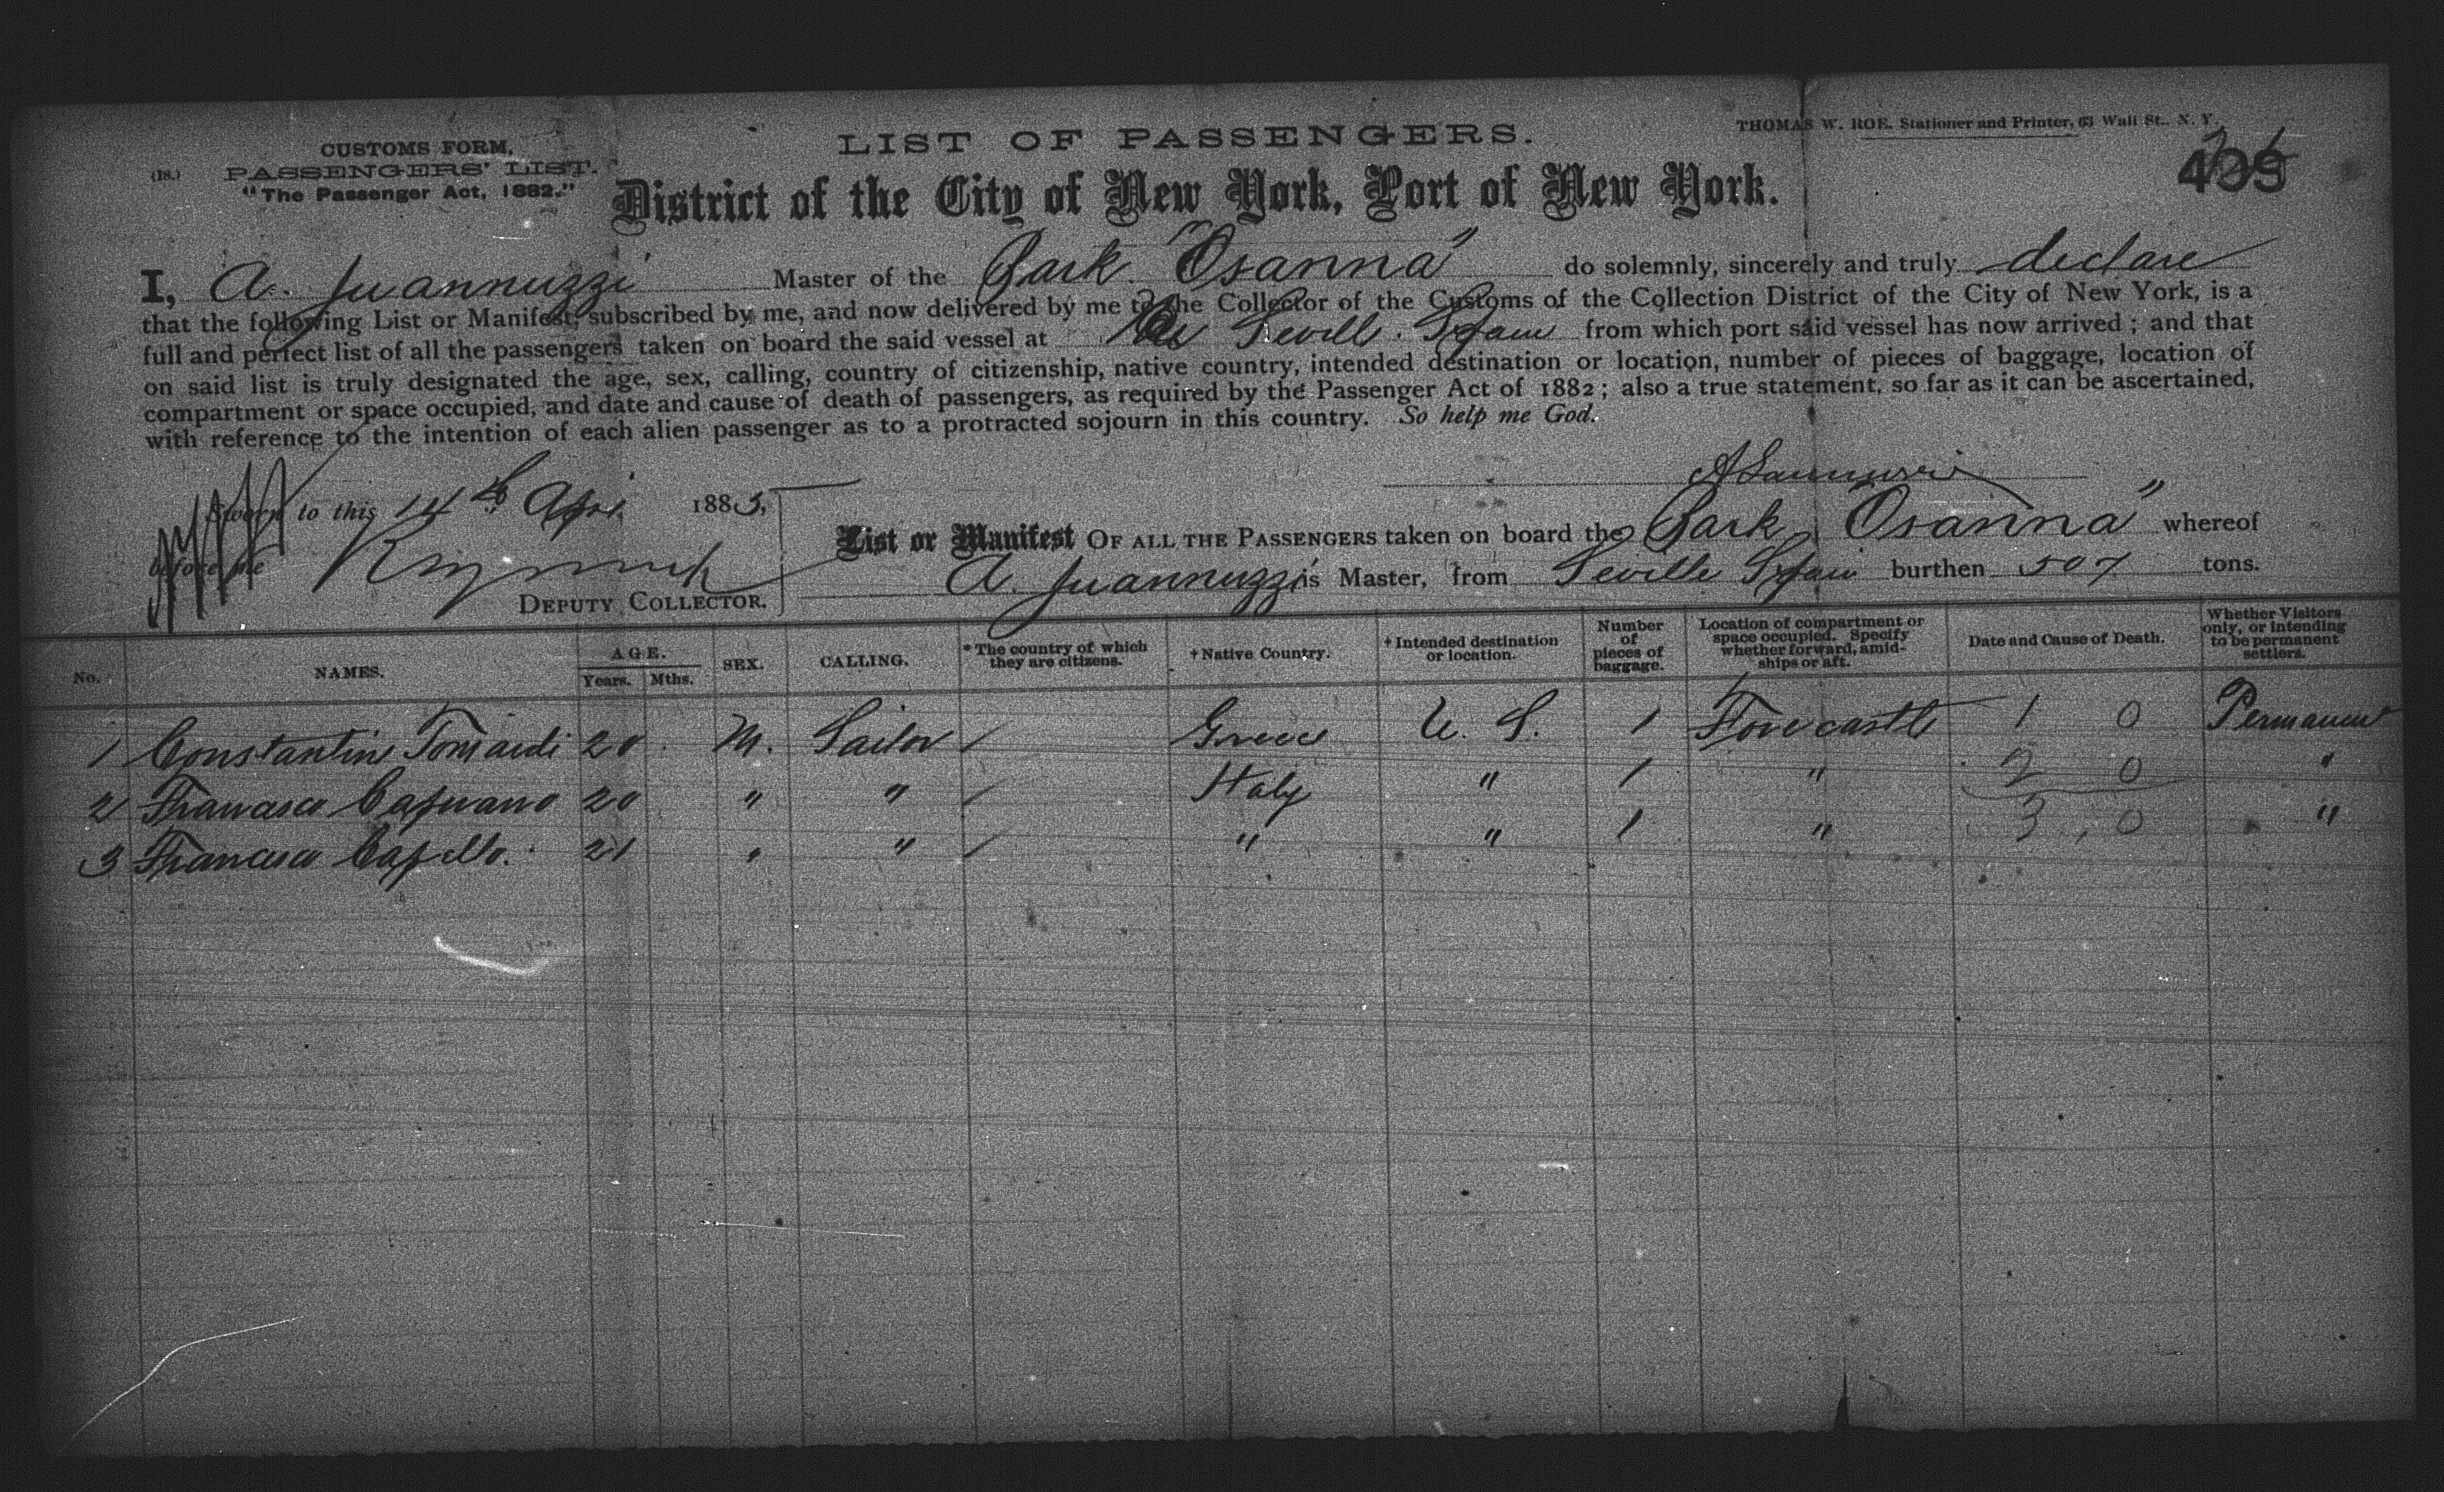 LIST OF PASSENGERS.
THOMAS W. ROE, Stationer and Printer, 63 Wall St., N. Y.
CUSTOMS FORM,
(18.) PASSENGERS' LIST.
"The Passenger Act, 1882."
District of the City of New York, Port of New York.
409
I, A. Juannuzzi Master of the Bark "Osanna" do solemnly, sincerely and truly declare
that the following List or Manifest, subscribed by me, and now delivered by me to the Collector of the Customs of the Collection District of the City of New York, is a
full and perfect list of all the passengers taken on board the said vessel at Seville. Spain from which port said vessel has now arrived; and that
on said list is truly designated the age, sex, calling, country of citizenship, native country, intended destination or location, number of pieces of baggage, location of
compartment or space occupied, and date and cause of death of passengers, as required by the Passenger Act of 1882; also a true statement, so far as it can be ascertained,
with reference to the intention of each alien passenger as to a protracted sojourn in this country. So help me God.
Sworn to this 14th Apri 1885,
before me
DEPUTY COLLECTOR.
List or Manifest OF ALL THE PASSENGERS taken on board the Bark "Osanna" whereof
A. Juannuzzi is Master, from Seville Spain burthen 507 tons.
No. NAMES. AGE. Years. Mths. SEX. CALLING. *The country of which they are citizens. †Native Country. †Intended destination or location. Number of pieces of baggage. Location of compartment or space occupied. Specify whether forward, amidships or aft. Date and Cause of Death. Whether Visitors only, or intending to be permanent settlers.
1 Constantin Tomaidi 20 M. Sailor / Greece U. S. 1 Forecastle 1 0 Permanent
2 Francesco Capuano 20 " " / Italy " 1 " 2 0 "
3 Francesco Capello. 21 " " / " " 1 " 3 0 "